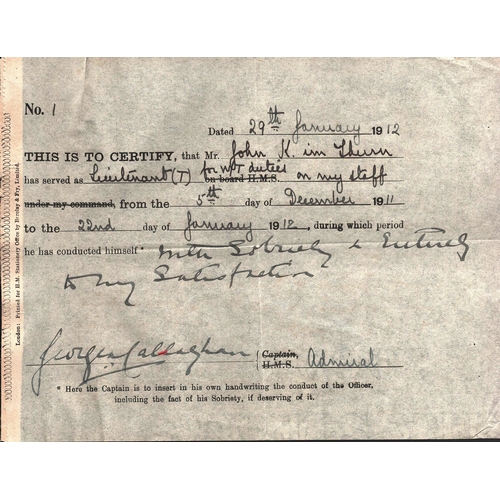 No. 1
Dated 29th January 1912
THIS IS TO CERTIFY, that Mr. John K. im Thurn
for W T duties
has served as Lieutenant (T) on board H.M.S. on my staff
under my command, from the 5th day of December 1911
to the 22nd day of January 1912, during which period
he has conducted himself * with Sobriety & Entirely
to my Satisfaction
George A Callaghan
(Captain, Admiral
H.M.S.
* Here the Captain is to insert in his own handwriting the conduct of the Officer,
including the fact of his Sobriety, if deserving of it.
London: Printed for H.M. Stationery Office by Burday & Fry, Limited.